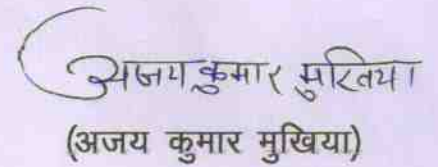 अजय कुमार मुखिया
(अजय कुमार मुखिया)